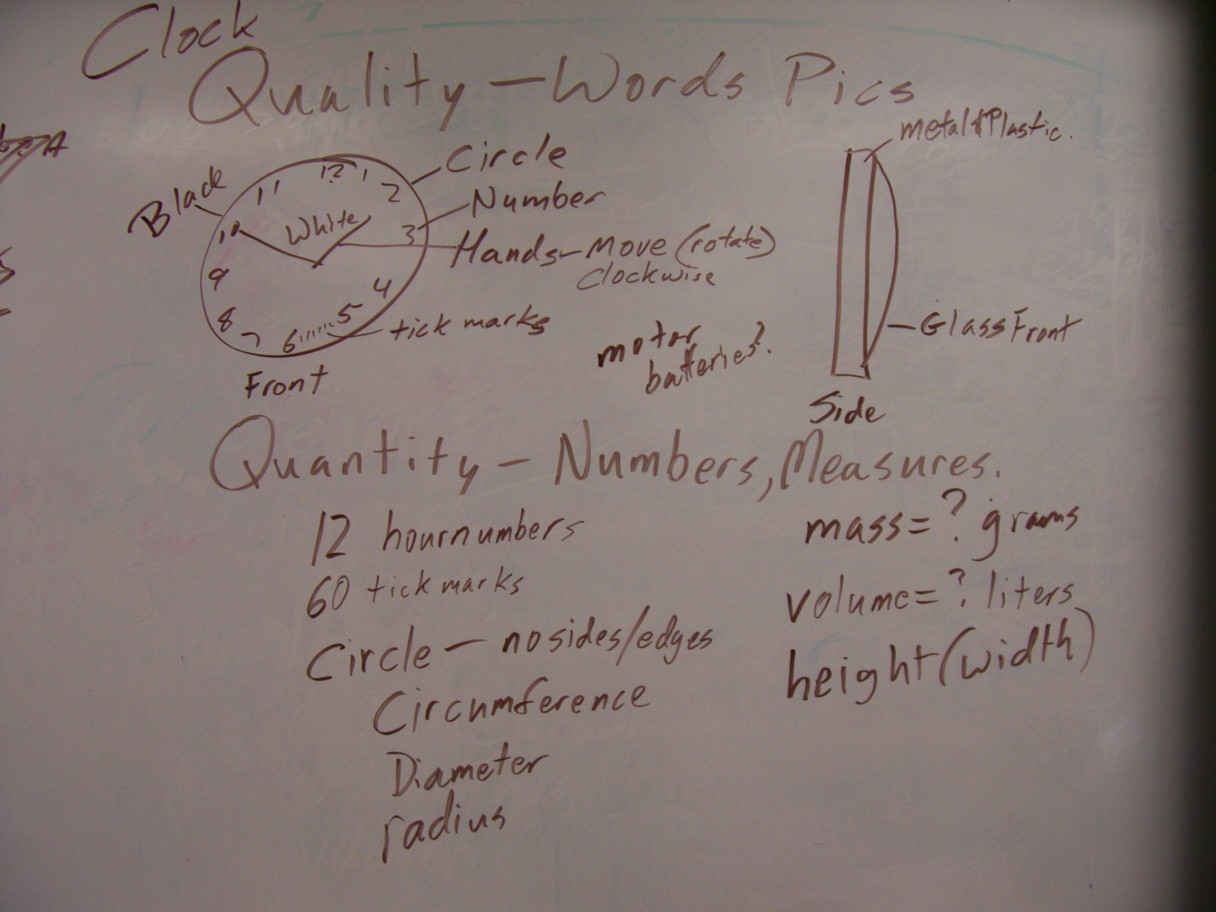 Clock
Quality - Words Pics
metal & Plastic.
Circle
Black
12
1
11
2
Number
White
10
3
Hands - Move (rotate)
clockwise
9
4
8
5
7
6
tick marks
motor
batteries?
Glass Front
Front
Side
Quantity - Numbers, Measures.
12 hour numbers
60 tick marks
Circle - no sides/edges
Circumference
Diameter
radius
mass = ? grams
volume = ? liters
height (width)